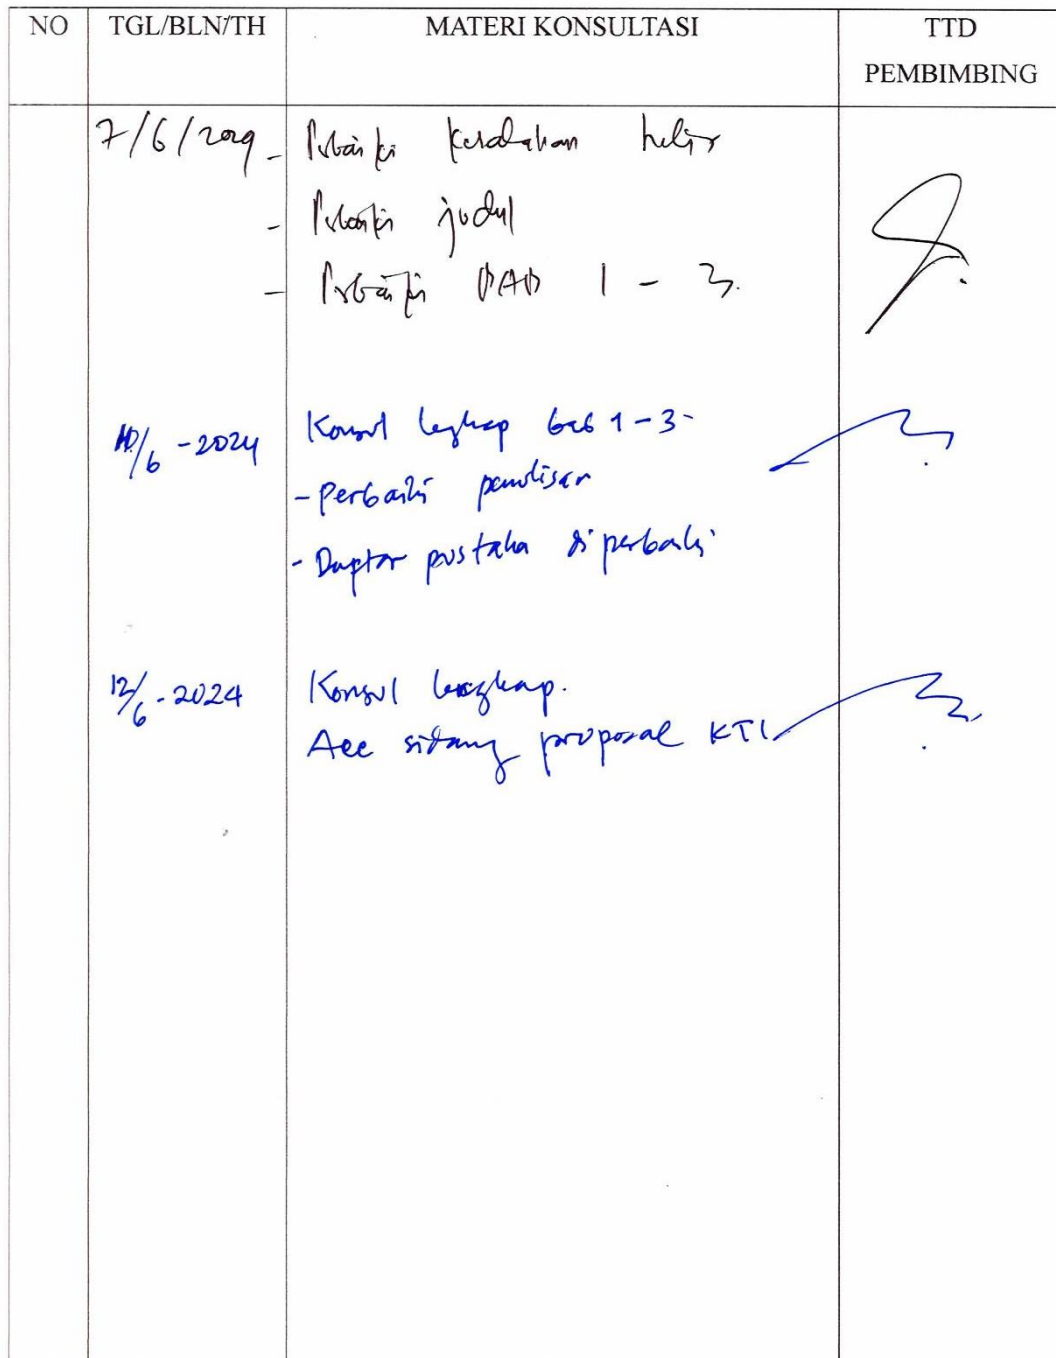 NO TGL/BLN/TH MATERI KONSULTASI TTD
PEMBIMBING
7/6/2024 - Perbaiki Kesalahan
- Perbaiki judul
- Perbaiki BAB 1 - 3.
10/6 - 2024 Konsul lengkap bab 1-3-
- Perbaiki penulisan
- Daptar pustaka diperbaiki
12/6 - 2024 Konsul lengkap.
Acc sidang proposal KTI